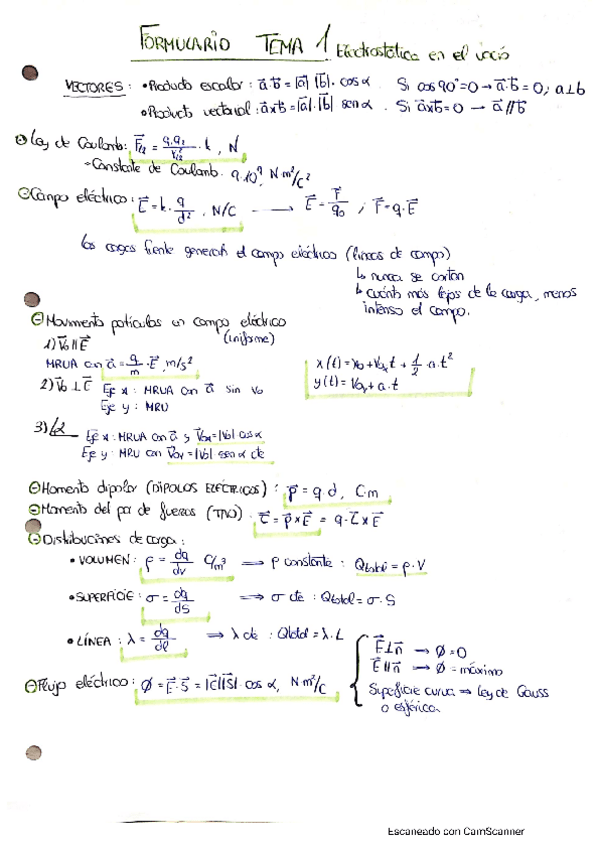 FORMULARIO TEMA 1 Electrostática en el vacío
VECTORES: • Producto escalar: a⃗·b⃗ = |a⃗| |b⃗|· cos α. Si cos 90° = 0 → a⃗·b⃗ = 0; a⊥b
• Producto vectorial: a⃗xb⃗ = |a⃗|·|b⃗| sen α. Si a⃗xb⃗ = 0 → a⃗ // b⃗
⊖ Ley de Coulomb: F⃗₁₂ = q₁q₂/r₁₂² · k, N
- Constante de Coulomb. 9·10⁹ N·m²/C²
⊖ Campo eléctrico: E⃗ = k· q/d², N/C → E⃗ = F⃗/q₀ ; F⃗ = q·E⃗
las cargas fuente generan el campo eléctrico (líneas de campo)
↳ nunca se cortan
↳ cuánto más lejos de la carga, menos
intenso el campo.
⊖ Movimiento partículas en campo eléctrico
(uniforme)
1) V⃗₀ // E⃗
MRUA con a⃗ = q/m · E⃗, m/s²
x(t) = x₀ + V₀ₓt + 1/2 · a · t²
y(t) = V₀y + a·t
2) V⃗₀ ⊥ E⃗ Eje x: MRUA con a⃗ sin v₀
Eje y: MRU
3) ∠α Eje x: MRUA con a⃗ y V₀ₓ = |V₀| cos α
Eje y: MRU con V₀y = |V₀| sen α cte
⊖ Momento dipolar (DIPOLOS ELÉCTRICOS): p⃗ = q·d, C·m
⊖ Momento del par de fuerzas (TMO). τ⃗ = p⃗ x E⃗ = q·L⃗ x E⃗
⊖ Distribuciones de carga:
• VOLUMEN: ρ = dq/dv C/m³ ⟹ ρ constante: Qtotal = ρ·V
• SUPERFICIE: σ = dq/dS ⟹ σ cte: Qtotal = σ·S
• LÍNEA: λ = dq/dl ⟹ λ cte: Qtotal = λ·L
⊖ Flujo eléctrico: Ø = E⃗·S⃗ = |E||S|· cos α, N m²/C
E⃗ ⊥ n⃗ → Ø = 0
E⃗ // n⃗ → Ø = máximo
Superficie curva ⟹ Ley de Gauss
o esférica
Escaneado con CamScanner